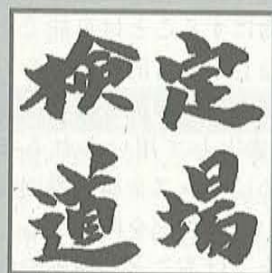 検定
道場